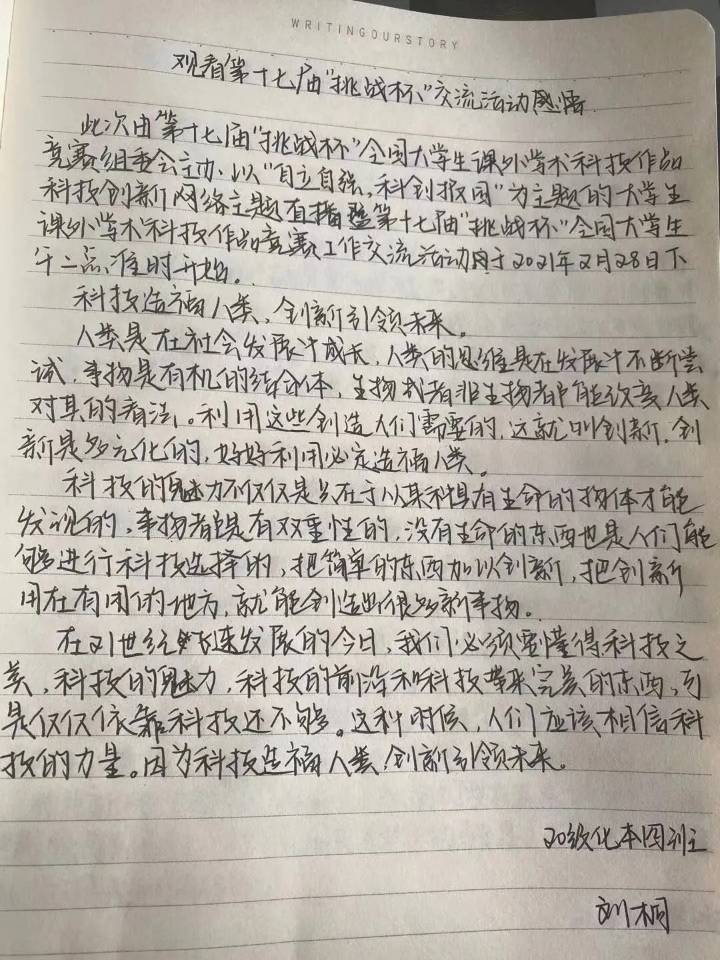 WRITINGOURSTORY
观看第十七届"挑战杯"交流活动感悟
此次由第十七届"挑战杯"全国大学生课外学术科技作品
竞赛组委会主办、以"自立自强,科创报国"为主题的大学生
科技创新网络主题直播暨第十七届"挑战杯"全国大学生
课外学术科技作品竞赛工作交流活动于2021年2月28日下
午二点准时开始。
科技造福人类,创新引领未来。
人类是在社会发展中成长,人类的思维是在发展中不断尝
试,事物是有机的结合体,生物或者非生物都能改变人类
对其的看法。利用这些创造人们需要的,这就叫创新,创
新是多元化的,好好利用必定造福人类。
科技的魅力不仅仅是只在于以某种具有生命的物体才能
发现的,事物都是有双重性的,没有生命的东西也是人们能
够进行科技选择的,把简单的东西加以创新,把创新
用在有用的地方,就能创造出很多新事物。
在21世纪飞速发展的今日,我们必须要懂得科技之
美,科技的魅力,科技的前沿和科技带来完美的东西,可
是仅仅依靠科技还不够。这种时候,人们应该相信科
技的力量。因为科技造福人类,创新引领未来。
20级化本四班
刘桐